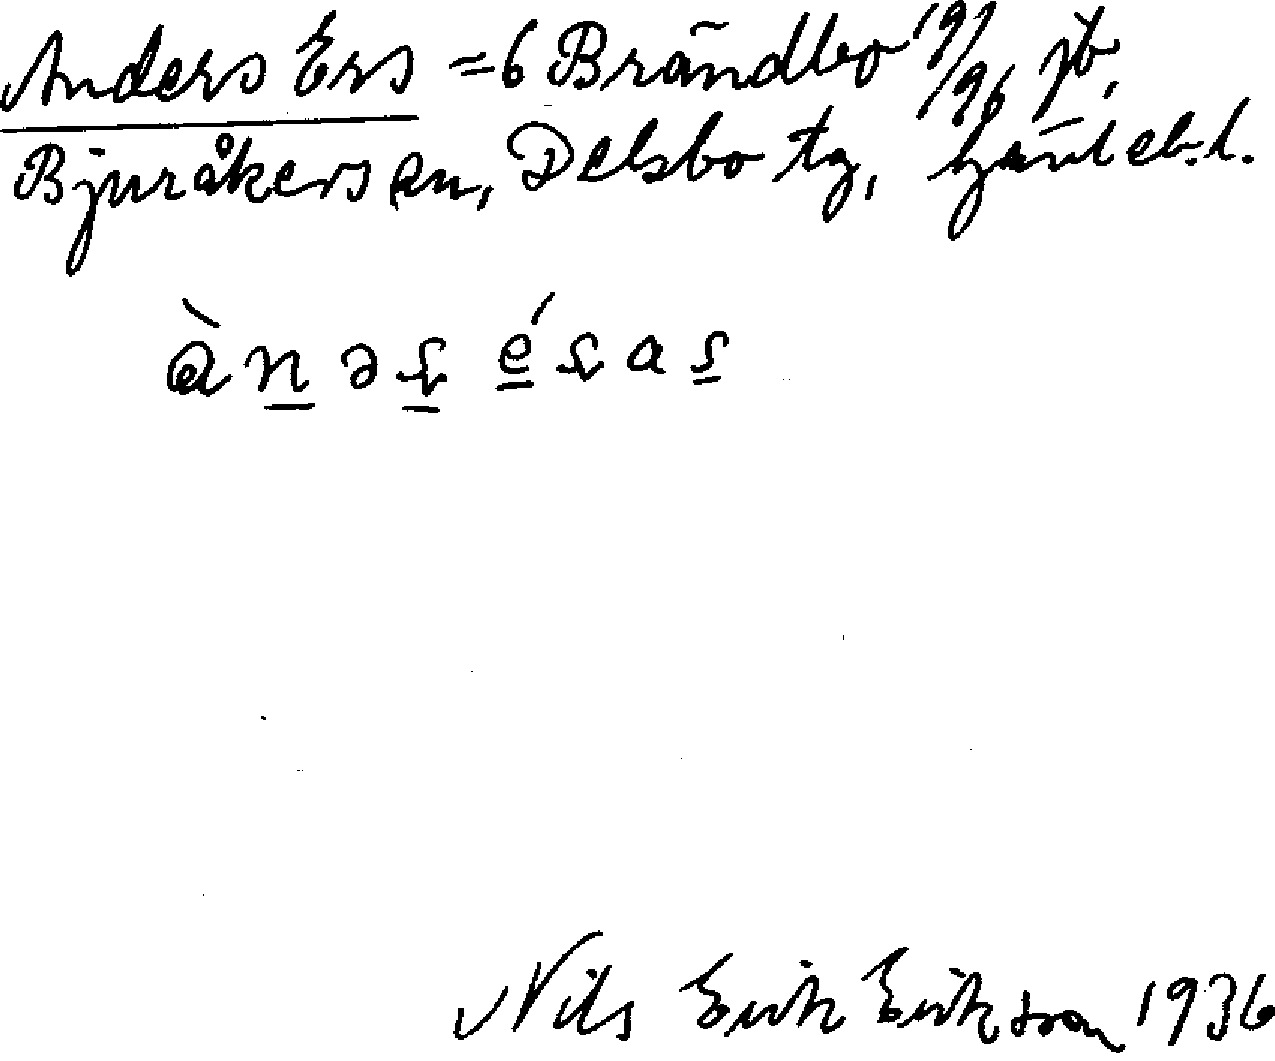 Anders Ers = 6 Brändbo 191/96 jb,
Bjuråkers sn, Delsbo tg, Gävleb. l.
Nils Erik Eriksson 1936